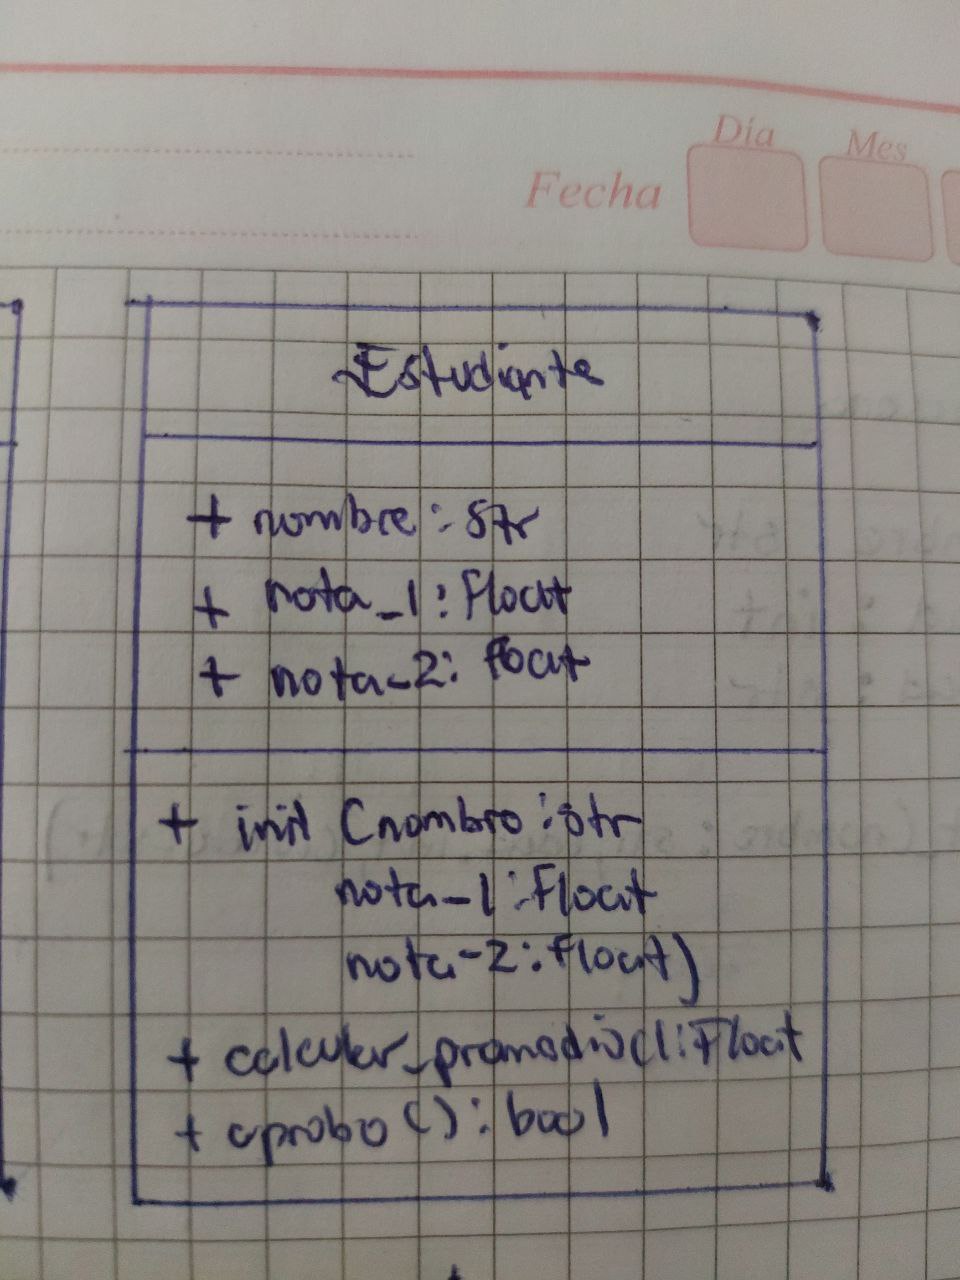 Día
Mes
Fecha
Estudiante
+ nombre: str
+ nota_1: Float
+ nota_2: float
+ init (nombre: str
nota_1: Float
nota_2: float)
+ calcular_promedio(): Float
+ aprobo(): bool